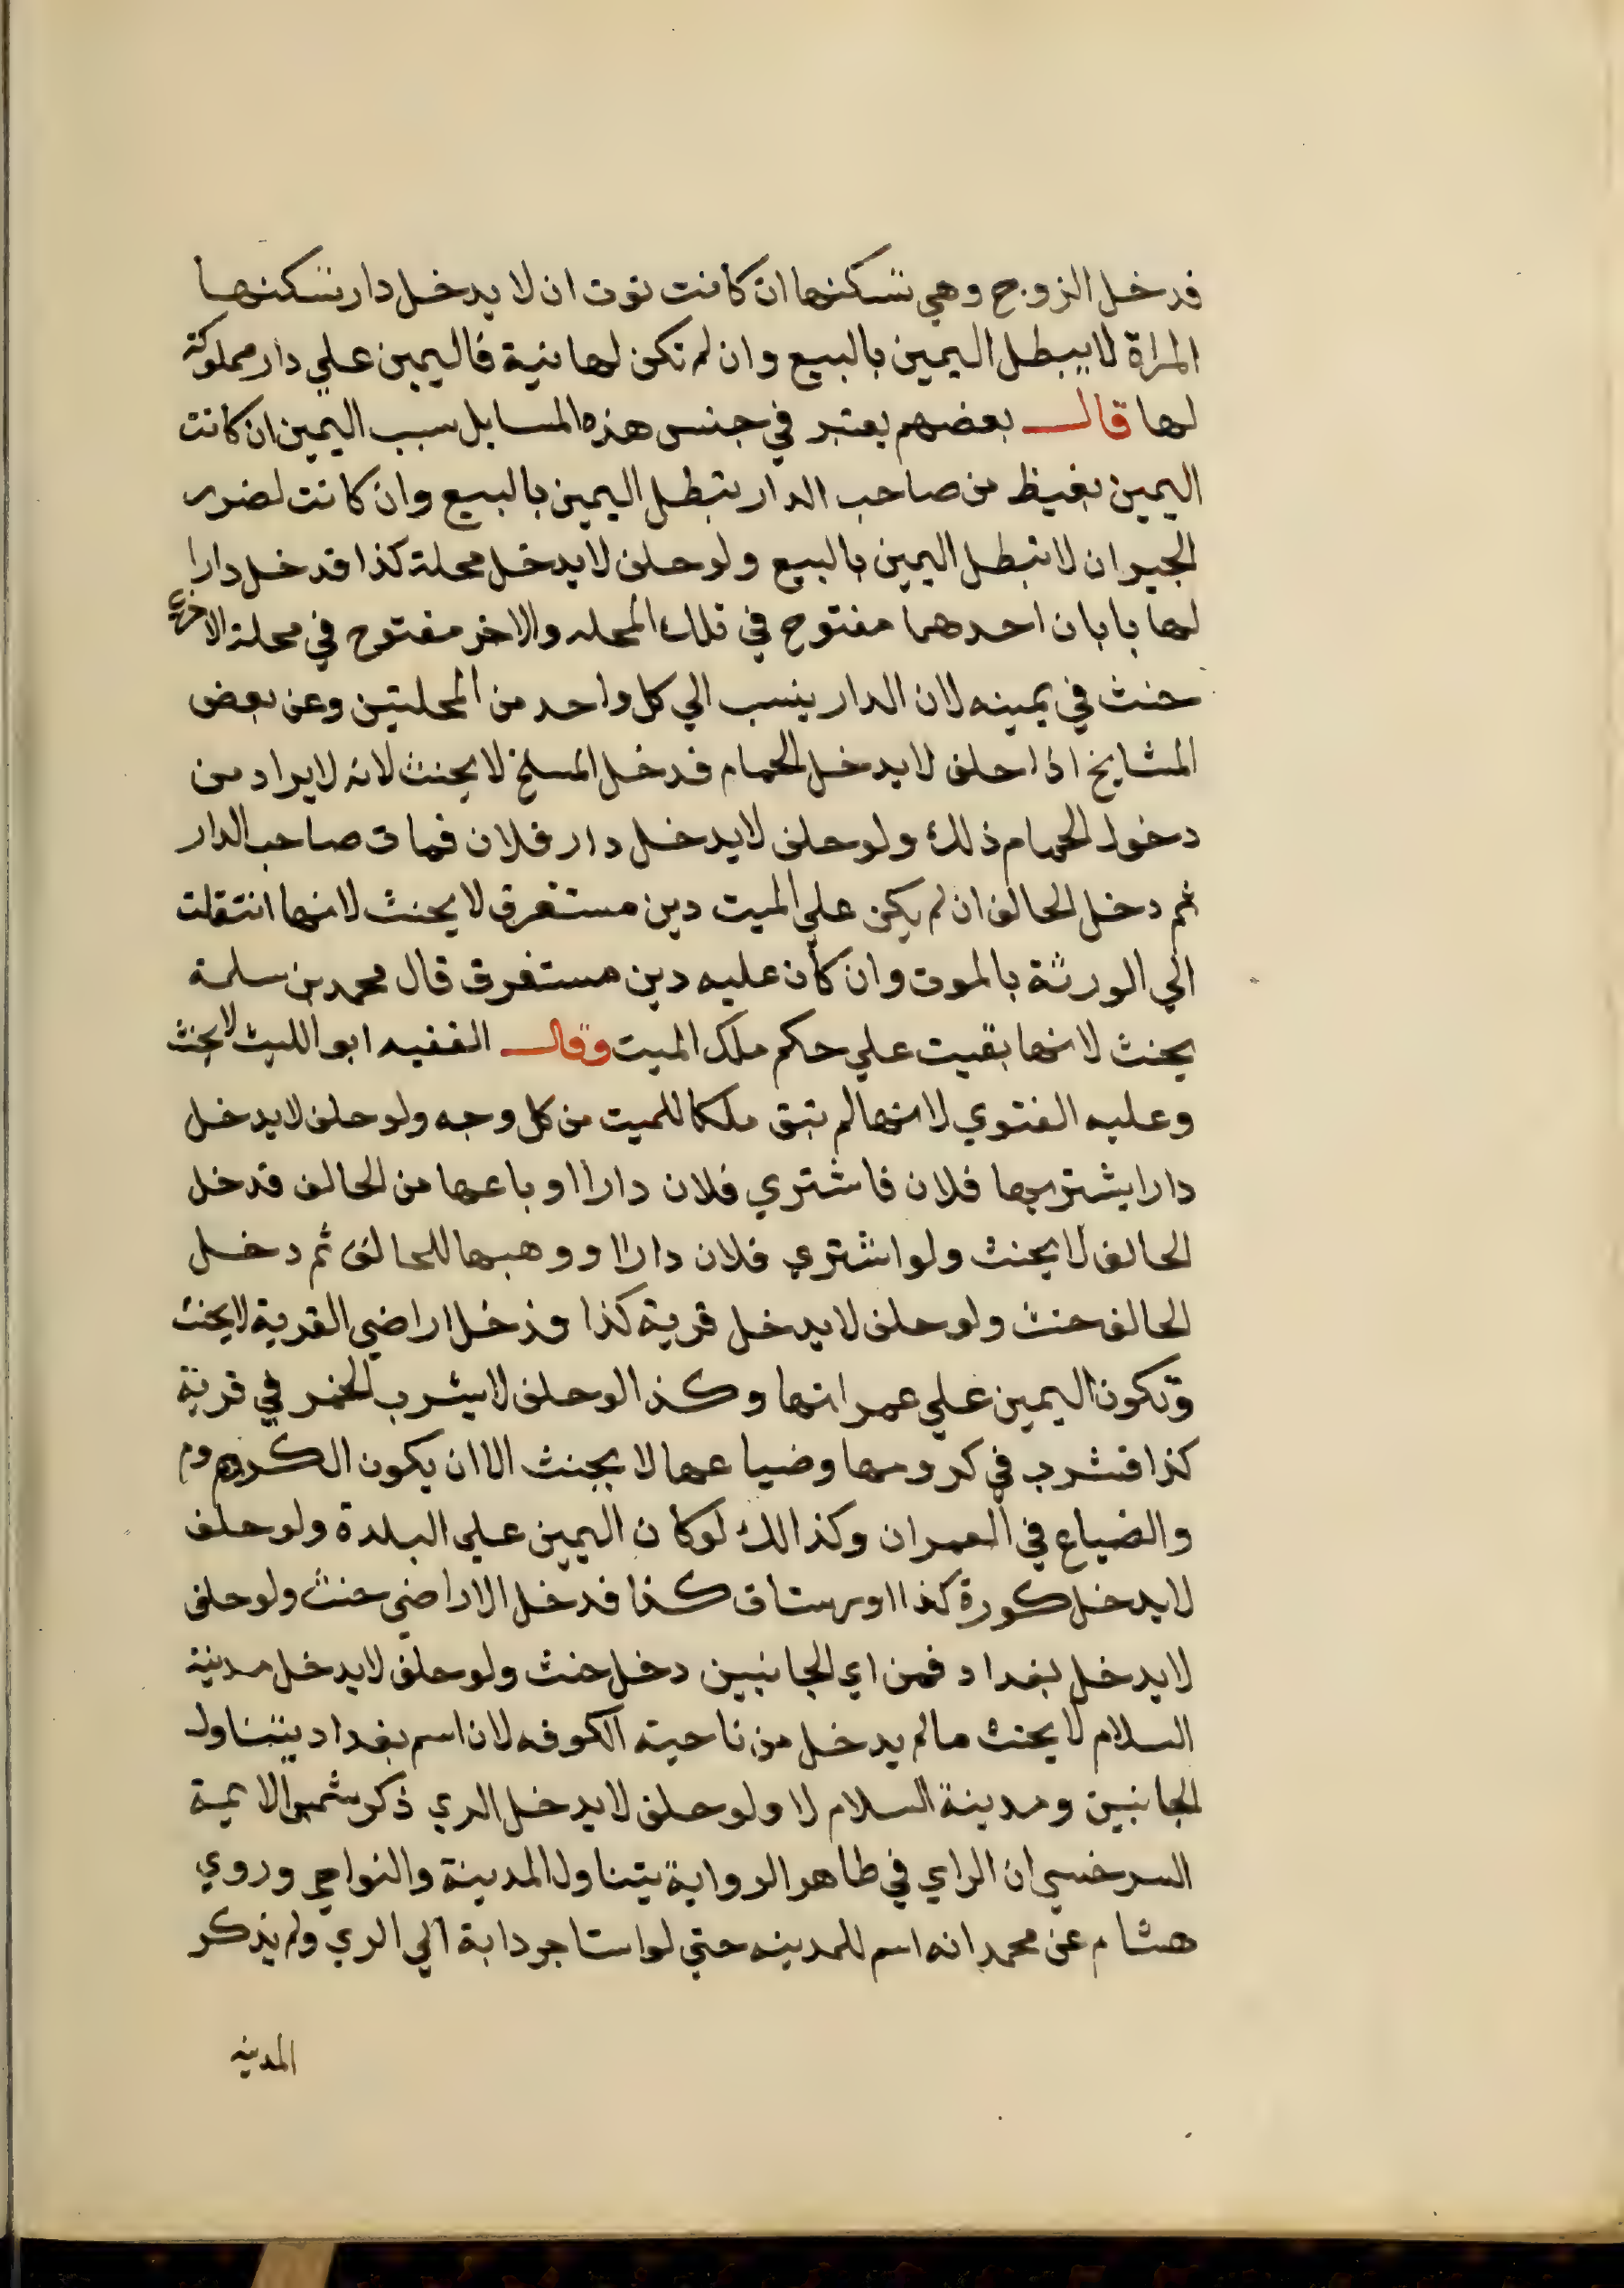 فدخل الزوج وهي تسكنها ان كانت نوت ان لا يدخل دار تسكنها
المراة لا يبطل اليمين بالبيع وان لم تكن لها نية فاليمين علي دار مملوكة
لها قال بعضهم يعتبر في جنس هذه المسايل سبب اليمين ان كانت
اليمين بغيظ من صاحب الدار تبطل اليمين بالبيع وان كانت لضرر
الجيران لا تبطل اليمين بالبيع ولو حلف لا يدخل محلة كذا فدخل دارا
لها بابان احدهما مفتوح في تلك المحله والاخر مفتوح في محلة الاخري
حنث في يمينه لان الدار ينسب الي كل واحد من المحلتين وعن بعض
المشايخ اذا حلف لا يدخل الحمام فدخل المسلخ لا يحنث لانه لا يراد من
دخول الحمام ذلك ولو حلف لا يدخل دار فلان فمات صاحب الدار
ثم دخل الحالف ان لم يكن علي الميت دين مستغرق لا يحنث لانها انتقلت
الي الورثة بالموت وان كان عليه دين مستغرق قال محمد بن سلمة
يحنث لانها بقيت علي حكم ملك الميت وقال الفقيه ابو الليث لا يحنث
وعليه الفتوي لانها لم تبق ملكا للميت من كل وجه ولو حلف لا يدخل
دارا يشتريها فلان فاشتري فلان دارا وباعها من الحالف فدخل
الحالف لا يحنث ولو اشتري فلان دارا ووهبها للحالف ثم دخل
الحالف حنث ولو حلف لا يدخل قرية كذا فدخل اراضي القرية لا يحنث
وتكون اليمين علي عمرانها وكذا لو حلف لا يشرب الخمر في قرية
كذا فشرب في كرومها وضياعها لا يحنث الا ان يكون الكروم
والضياع في العمران وكذالك لو كان اليمين علي البلدة ولو حلف
لا يدخل كورة كذا او رستاق كذا فدخل الاراضي حنث ولو حلف
لا يدخل بغداد فمن اي الجانبين دخل حنث ولو حلف لا يدخل مدينة
السلام لا يحنث مالم يدخل من ناحية الكوفه لان اسم بغداد يتناول
الجانبين ومدينة السلام لا ولو حلف لا يدخل الري ذكر شمس الايمة
السرخسي ان الراي في ظاهر الرواية يتناول المدينة والنواحي وروي
هشام عن محمد انه اسم للمدينه حتي لو استاجر دابة الي الري ولم يذكر
المدينه